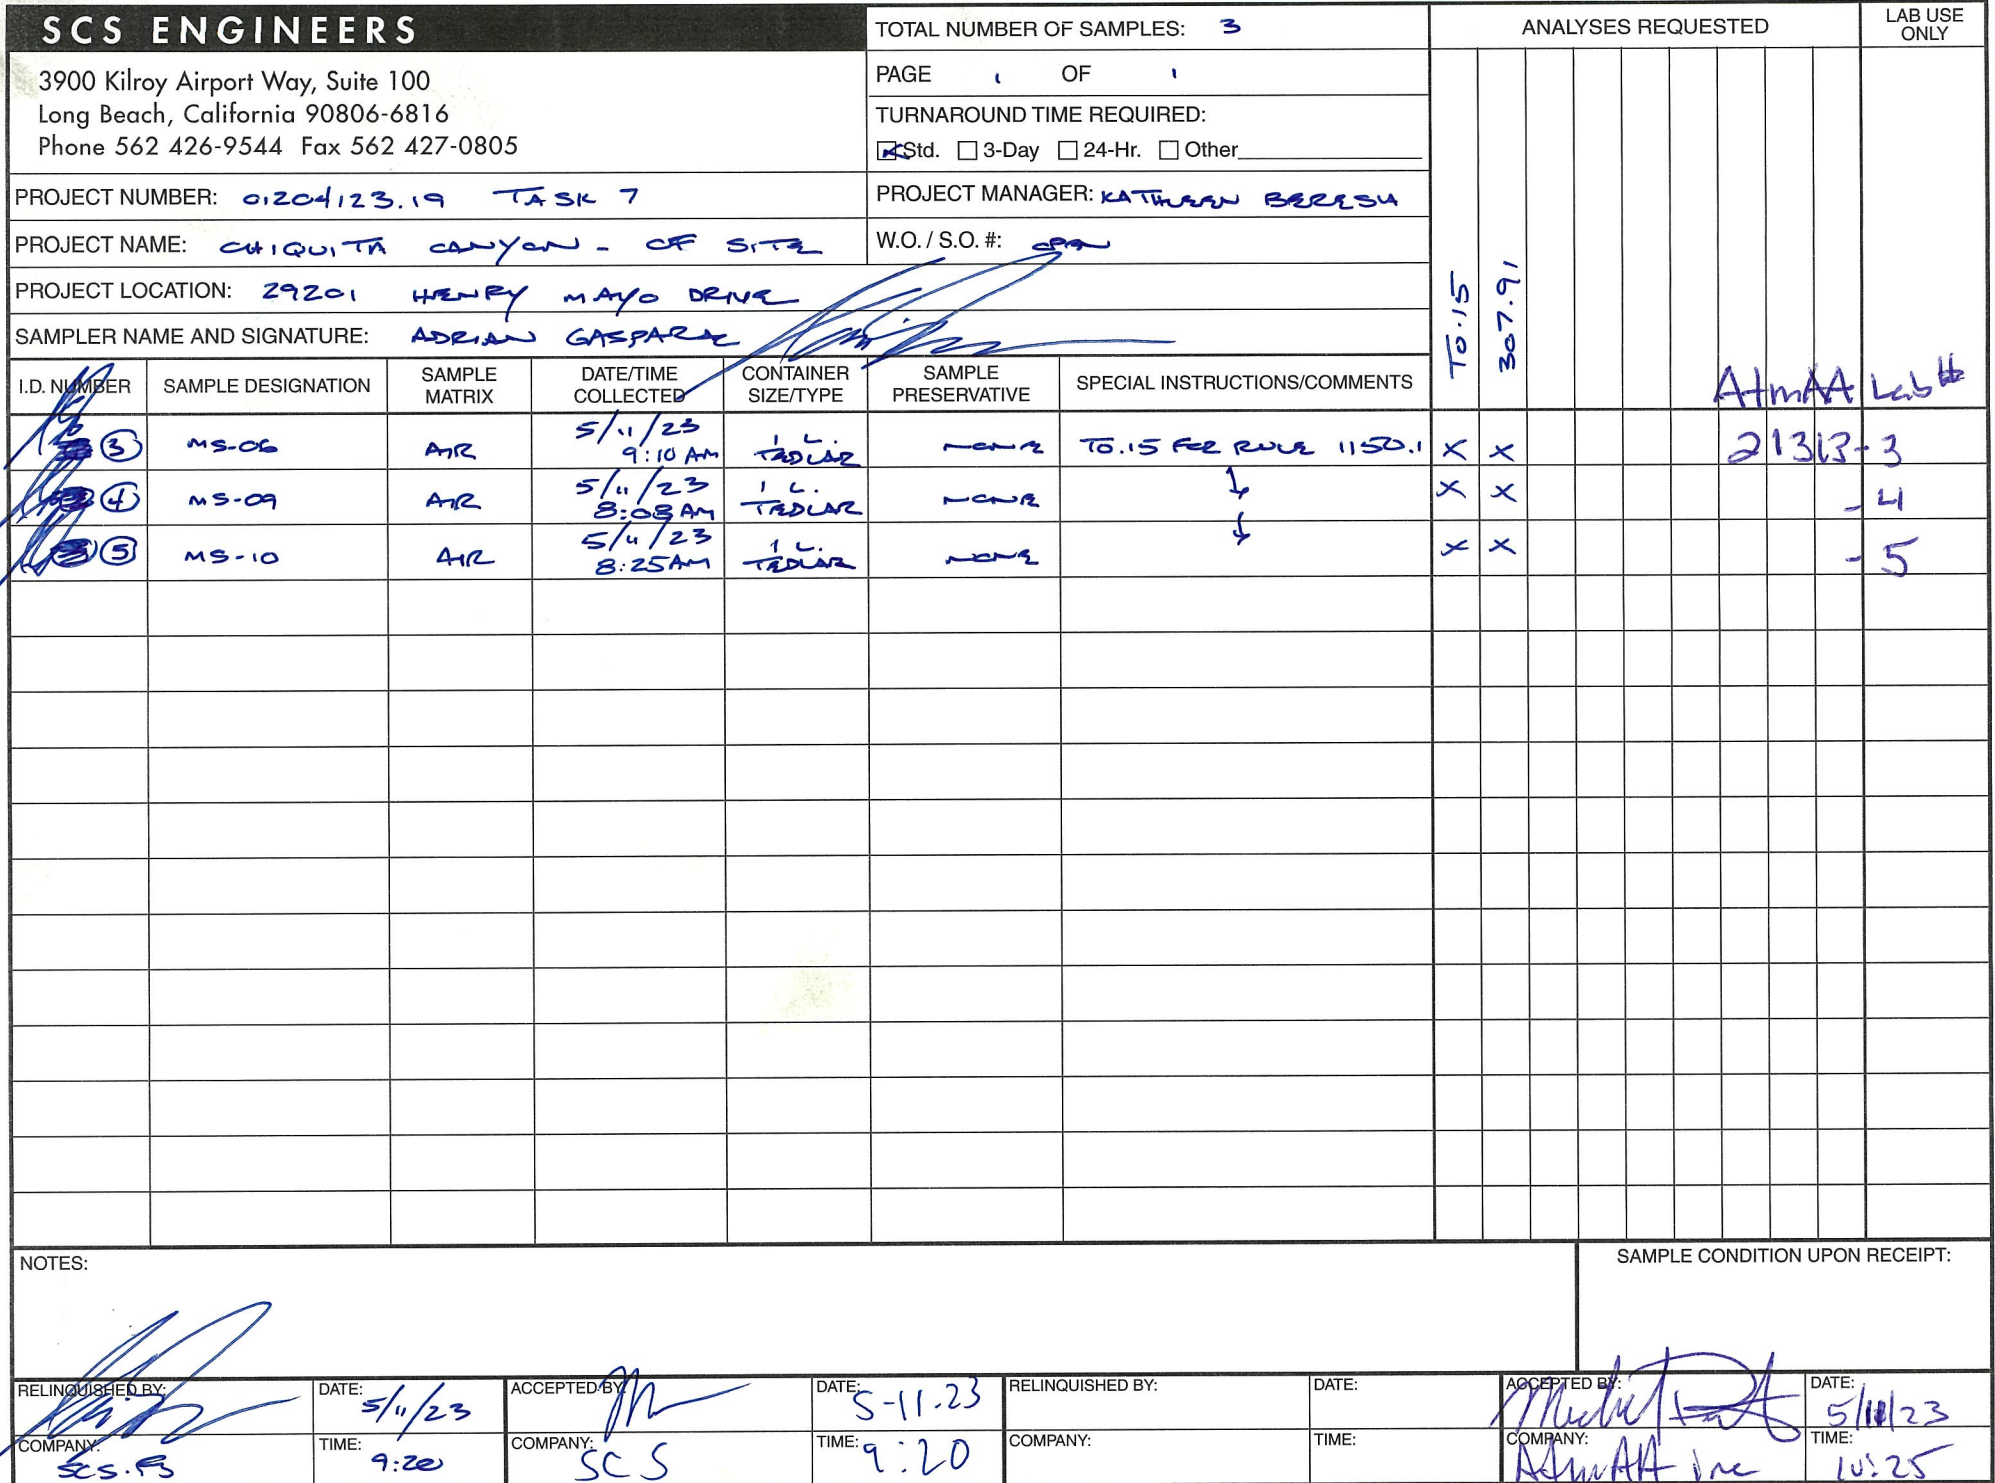 SCS ENGINEERS
3900 Kilroy Airport Way, Suite 100
Long Beach, California 90806-6816
Phone 562 426-9544 Fax 562 427-0805
TOTAL NUMBER OF SAMPLES: 3
PAGE 1 OF 1
TURNAROUND TIME REQUIRED:
Std. 3-Day 24-Hr. Other
ANALYSES REQUESTED
LAB USE ONLY
PROJECT NUMBER: 01204123.19 TASK 7
PROJECT MANAGER: KATHLEEN
PROJECT NAME: CHIQUITA CANYON - OF SITE
W.O. / S.O. #:
PROJECT LOCATION: 29201 HENRY MAYO DRIVE
SAMPLER NAME AND SIGNATURE: ADRIAN
TO.15
307.91
AtmAA Lab #
I.D. NUMBER SAMPLE DESIGNATION SAMPLE MATRIX DATE/TIME COLLECTED CONTAINER SIZE/TYPE SAMPLE PRESERVATIVE SPECIAL INSTRUCTIONS/COMMENTS
3 MS-06 AIR 5/11/23 9:10 AM 1 L. TEDLAR NONE TO.15 PER RULE 1150.1 X X 21313-3
4 MS-09 AIR 5/11/23 8:08 AM 1 L. TEDLAR NONE ↓ X X -4
5 MS-10 AIR 5/11/23 8:25 AM 1 L. TEDLAR NONE ↓ X X -5
NOTES:
SAMPLE CONDITION UPON RECEIPT:
RELINQUISHED BY: DATE: 5/11/23 ACCEPTED BY: DATE: 5-11-23 RELINQUISHED BY: DATE: ACCEPTED BY: DATE: 5/11/23
COMPANY: SCS.FS TIME: 9:20 COMPANY: SCS TIME: 9:20 COMPANY: TIME: COMPANY: AtmAA Inc TIME: 10:25